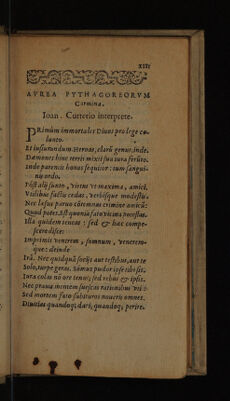 XIII
AVREA PYTHAGOREORVM
Carmina.
Ioan. Curterio interprete.
PRimùm immortales Diuos pro lege co-
lunto.
Et iusiurandum: Heroas, clarũ genus, inde.
Dæmones hinc terris mixti sua iura ferũto.
Inde parentis honos sequitor: tum sangui-
nis ordo.
Post alij sunto, virtus vt maxima, amici.
Vtilibus factu cedas, verbisque modestu.
Nec læsus paruo còtemnas crimine amicũ:
Quod potes. Ast quoniã fato vicina potestas.
Ista quidem teneas: sed & hæc compe-
scere disce:
Imprimis ventrem, somnum, venerem-
que: deinde
Irã. Nec quidquã socijs aut testibus, aut te
Solo, turpe geras. Summus pudor ipse tibi sis.
Iura colas nõ ore tenus, sed rebus & ipsis.
Nec praua mentem suescas rationibus vti:
Sed mortem fato subituros noueris omnes.
Diuitias quandoq; dari, quandoq; perire.